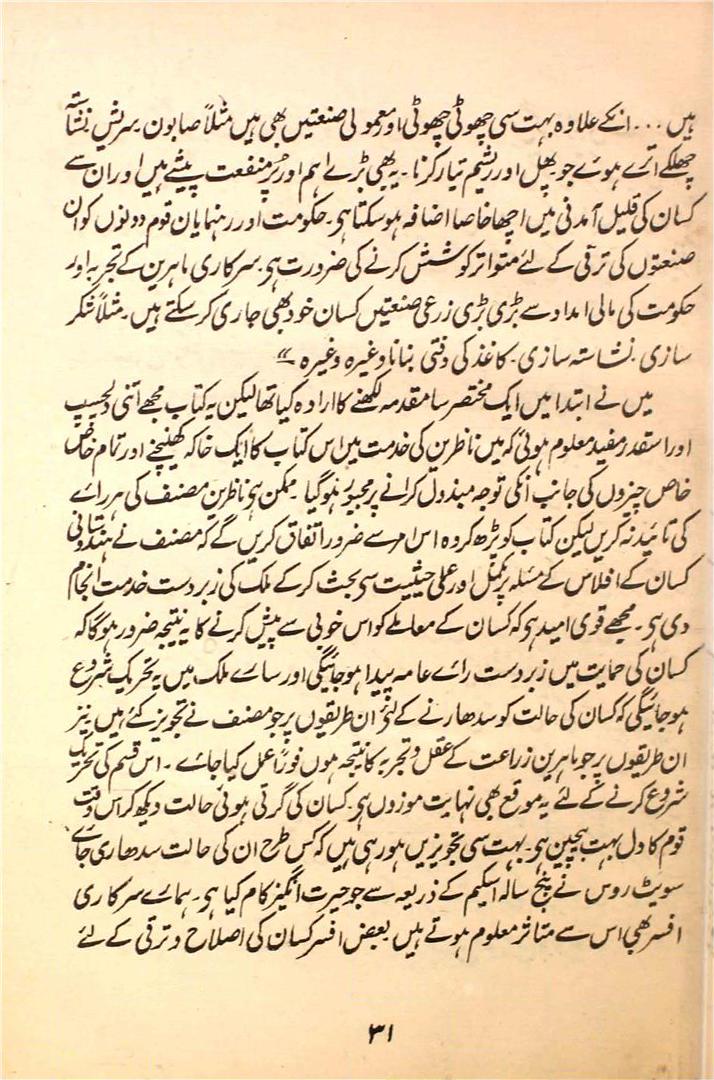 ہیں ... انکے علاوہ بہت سی چھوٹی چھوٹی اور معمولی صنعتیں بھی ہیں مثلاً صابون۔ سریش نشاستہ
چھلکے اترے ہوئے جو پھل اور ریشم تیار کرنا۔ یہ بھی بڑے اہم اور پُر منفعت پیشے ہیں اور ان سے
کسان کی قلیل آمدنی میں اچھا خاصا اضافہ ہو سکتا ہی۔ حکومت اور رہنمایان قوم دونوں کو ان
صنعتوں کی ترقی کے لئے متواتر کوشش کرنے کی ضرورت ہی۔ سرکاری ماہرین کے تجربہ اور
حکومت کی مالی امداد سے بڑی بڑی زرعی صنعتیں کسان خود بھی جاری کر سکتے ہیں۔ مثلاً شکر
سازی۔ نشاستہ سازی۔ کاغذ کی دفتی بنانا وغیرہ وغیرہ ؎"
میں نے ابتدا میں ایک مختصر سا مقدمہ لکھنے کا ارادہ کیا تھا لیکن یہ کتاب مجھے اتنی دلچسپ
اور استقدر مفید معلوم ہوئی کہ میں ناظرین کی خدمت میں اس کتاب کا ایک خاکہ کھینچنے اور تمام خاص
خاص چیزوں کی جانب انکی توجہ مبذول کرانے پر مجبور ہو گیا۔ ممکن ہی ناظرین مصنف کی ہر رائے
کی تائید نہ کریں لیکن کتاب کو پڑھ کر وہ اس امر سے ضرور اتفاق کریں گے کہ مصنف نے ہندوستانی
کسان کے افلاس کے مسئلہ پر مکمل اور علمی حیثیت سی بحث کر کے ملک کی زبردست خدمت انجام
دی ہی۔ مجھے قوی امید ہی کہ کسان کے معاملے کو اس خوبی سے پیش کرنے کا یہ نتیجہ ضرور ہو گا کہ
کسان کی حمایت میں زبردست رائے عامہ پیدا ہو جائیگی اور سارے ملک میں یہ تحریک شروع
ہو جائیگی کہ کسان کی حالت کو سدھارنے کے لئے ان طریقوں پر جو مصنف نے تجویز کئے ہیں نیز
ان طریقوں پر جو ماہرین زراعت کے عقل و تجربہ کا نتیجہ ہوں فوراً عمل کیا جائے۔ اس قسم کی تحریک
شروع کرنے کے لئے یہ موقع بھی نہایت موزوں ہی۔ کسان کی گرتی ہوئی حالت دیکھ کر اس وقت
قوم کا دل بہت بیچین ہی۔ بہت سی تجویزیں ہو رہی ہیں کہ کس طرح ان کی حالت سدھاری جائے
سویٹ روس نے پنج سالہ اسکیم کے ذریعہ سے جو حیرت انگیز کام کیا ہی۔ ہمارے سرکاری
افسر بھی اس سے متاثر معلوم ہوتے ہیں بعض افسر کسان کی اصلاح و ترقی کے لئے
۳۱